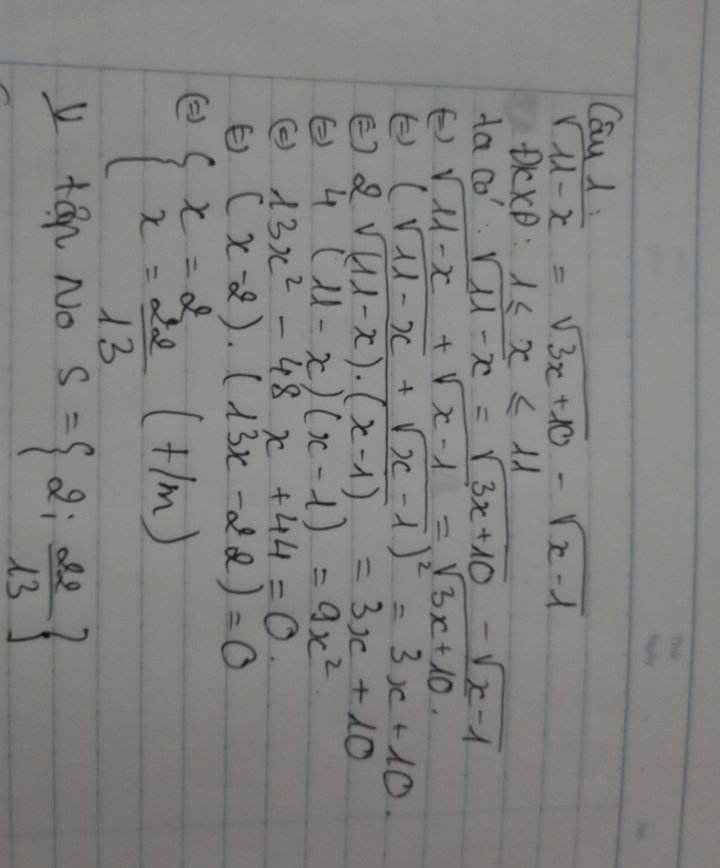 Câu 1:
√11-x = √3x+10 - √x-1
ĐKXĐ: 1 ≤ x ≤ 11
ta có: √11-x = √3x+10 - √x-1
(=) √11-x + √x-1 = √3x+10.
(=) (√11-x + √x-1)² = 3x+10.
(=) 2√(11-x).(x-1) = 3x+10
(=) 4 (11-x)(x-1) = 9x²
(=) 13x² - 48x + 44 = 0.
(=) (x-2).(13x-22) = 0
(=) { x = 2
x = 22/13 (t/m)
V tập No S = {2; 22/13}